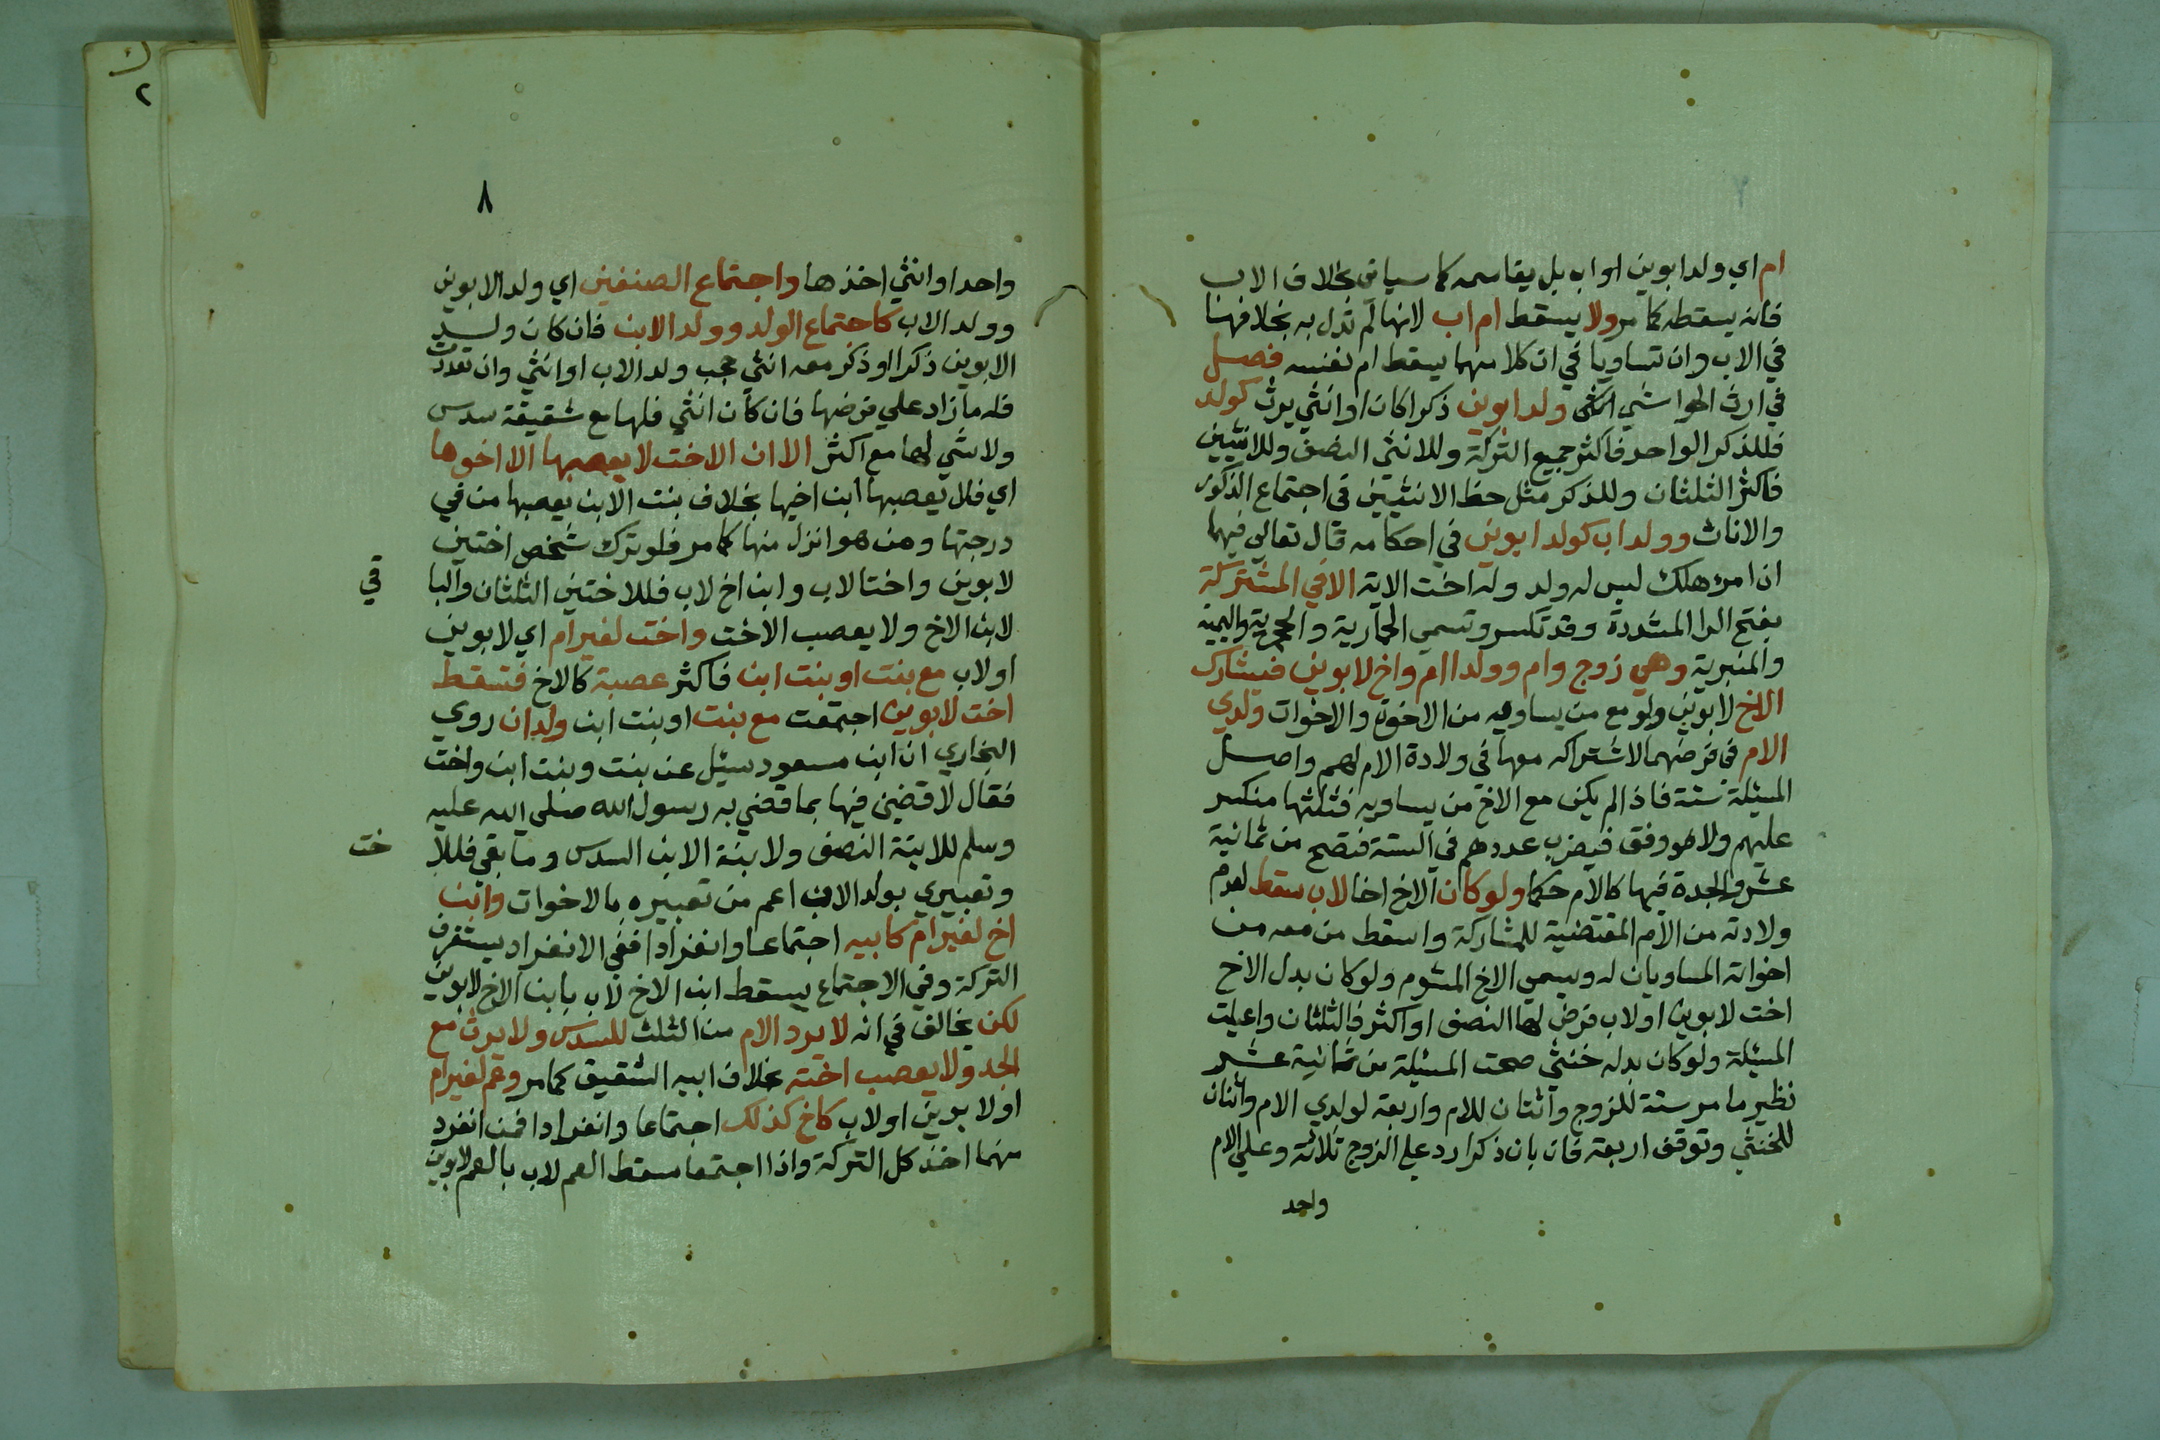 ام اي ولد ابوين او اب بل يقاسمه كما سياتي بخلاف الاب
فانه يسقطه كما مر ولا يسقط ام اب لانها لم تدل به بخلافهنا
في الاب وان تساويا في ان كلا منهما يسقط ام نفسه فصل
في ارث الحواشي ولد ابوين ذكرا كان او انثي يرث كولد
فللذكر الواحد فاكثر جميع التركة وللانثي النصف وللانثيين
فاكثر الثلثان وللذكر مثل حظ الانثيين في اجتماع الذكور
والاناث وولد اب كولد ابوين في احكامه قال تعالي فيهما
ان امرء هلك ليس له ولد وله اخت الاية الا في المشتركة
بفتح الرا المشددة وقد تكسر وتسمي الحمارية والحجرية واليمية
والمنبرية وهي زوج وام وولدا ام واخ لابوين فيشارك
الاخ لابوين ولو مع من يساويه من الاخوة والاخوات ولدي
الام في فرضهما لاشتراكه معهما في ولادة الام لهم واصل
المسئلة ستة فاذا لم يكن مع الاخ من يساويه فثلثها منكسر
عليهم ولا وفق فيضرب عددهم في الستة فتصح من ثمانية
عشر والجدة فيها كالام حكما ولو كان الاخ اخا لاب سقط لعدم
ولادته من الام المقتضية للمشاركة واسقط من معه من
اخواته المساويان له ويسمي الاخ المشوم ولو كان بدل الاخ
اخت لابوين او لاب فرض لها النصف او اكثر فالثلثان واعيلت
المسئلة ولو كان بدله خنثي صحت المسئلة من ثمانية عشر
نظير ما مر ستة للزوج واثنان للام واربعة لولدي الام واثنان
للخنثي وتوقف اربعة فان بان ذكرا رد علي الزوج ثلاثة وعلي الام
واحد
٨
واحدا او انثي اخذها واجتماع الصنفين اي ولد الابوين
وولد الاب كاجتماع الولد وولد الابن فان كان ولد
الابوين ذكرا او ذكر معه انثي حجب ولد الاب او انثي وان تعددت
فله ما زاد علي فرضها فان كان انثي فلها مع شقيقة سدس
ولا شي لها مع اكثر الا ان الاخت لا يعصبها الا اخوها
اي فلا يعصبها ابن اخيها بخلاف بنت الابن يعصبها من في
درجتها ومن هو انزل منها كما مر فلو ترك شخص اختين
لابوين واختا لاب وابن اخ لاب فللاختين الثلثان والبا
قي
لابن الاخ ولا يعصب الاخت واخت لغير ام اي لابوين
او لاب مع بنت او بنت ابن فاكثر عصبة كالاخ فتسقط
اخت لابوين اجتمعت مع بنت او بنت ابن ولد اب روي
البخاري ان ابن مسعود سئيل عن بنت وبنت ابن واخت
فقال لاقضين فيها بما قضي به رسول الله صلي الله عليه
وسلم للابنة النصف ولابنة الابن السدس وما بقي فللا
خت
وتعبيري بولد الاب اعم من تعبيره بالاخوات وابن
اخ لغير ام كابيه اجتماعا وانفرادا ففي الانفراد يستغرق
التركة وفي الاجتماع يسقط ابن الاخ لاب بابن الاخ لابوين
لكن يخالف في انه لا يرد الام من الثلث للسدس ولا يرث مع
الجد ولا يعصب اخته بخلاف ابيه الشقيق كما مر وعم لغير ام
او لابوين او لاب كاخ كذلك اجتماعا وانفرادا فمن انفرد
منهما اخذ كل التركة واذا اجتمعا سقط العم لاب بالعم لابوين
٢